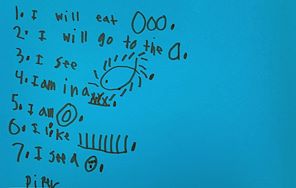 1. I will eat
2. I will go to the
3. I see
4. I am in a
5. I am
6. I like
7. I see a
Piper